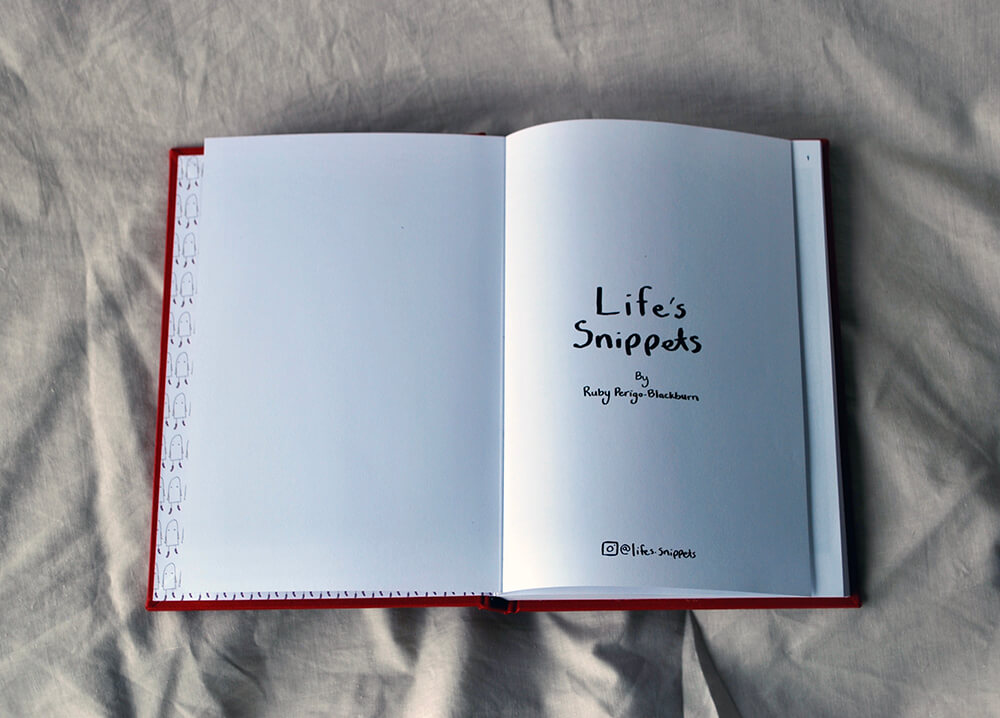 Life's
Snippets
By
Ruby Perigo-Blackburn
@lifes.snippets
1